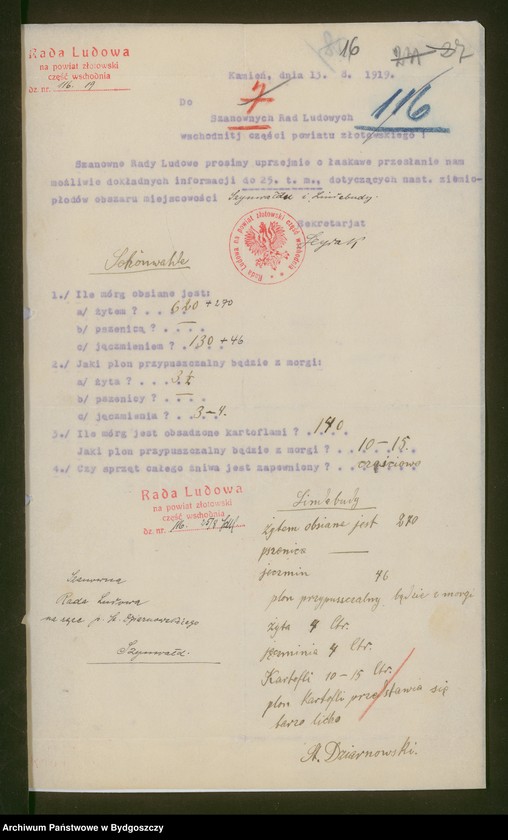 Rada Ludowa
na powiat złotowski
część wschodnia
dz. nr. 116. 19
16
Kamień, dnia 13. 8. 1919.
Do
7
116
Szanownych Rad Ludowych
wschodnitj części powiatu złotowskiego !
Szanowne Rady Ludowe prosimy uprzejmie o łaskawe przesłanie nam
możliwie dokładnych informacji do 25. t. m., dotyczących nast. ziemio-
płodów obszaru miejscowości Szynwałdu i Limiebudy.
Sekretarjat
Rada Ludowa na powiat złotowski część wschodnia
Schönwalde
1./ Ile mórg obsiane jest:
a/ żytem ? . . 620 + 270
b/ pszenicą ? . — . . .
c/ jęczmieniem ? . 130 + 46
2./ Jaki plon przypuszczalny będzie z morgi:
a/ żyta ? . . .
b/ pszenicy ? . — .
c/ jęczmienia ? . . 3-4.
3./ Ile mórg jest obsadzone kartoflami ? . 140
Jaki plon przypuszczalny będzie z morgi ? . . 10-15
4./ Czy sprzęt całego żniwa jest zapewniony ? . . częściowo
Rada Ludowa
na powiat złotowski
część wschodnia
dz. nr. 116. 25/8
żytem obsiane jest 270
pszenica —
jęczmin 46
plon przypuszczalny będzie z morgi
żyta 4 Ctr.
jęczminia 4 Ctr.
Kartofli 10-15 Ctr.
plon Kartofli przedstawia się
barzo licho
A. Dziarnowski.
Szanowna
Rada Ludowa
na ręce p.
Szynwałd.
Archiwum Państwowe w Bydgoszczy